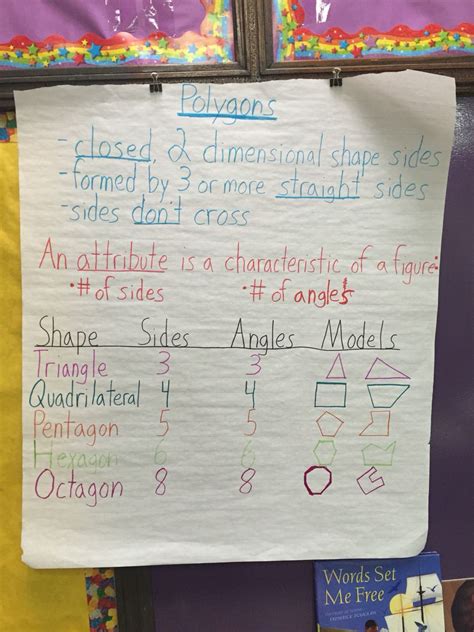 Polygons
-closed, 2 dimensional shape sides
-formed by 3 or more straight sides
-sides don't cross
An attribute is a characteristic of a figure:
•# of sides •# of angles
Shape Sides Angles Models
Triangle 3 3
Quadrilateral 4 4
Pentagon 5 5
Hexagon 6 6
Octagon 8 8
Words Set
Me Free